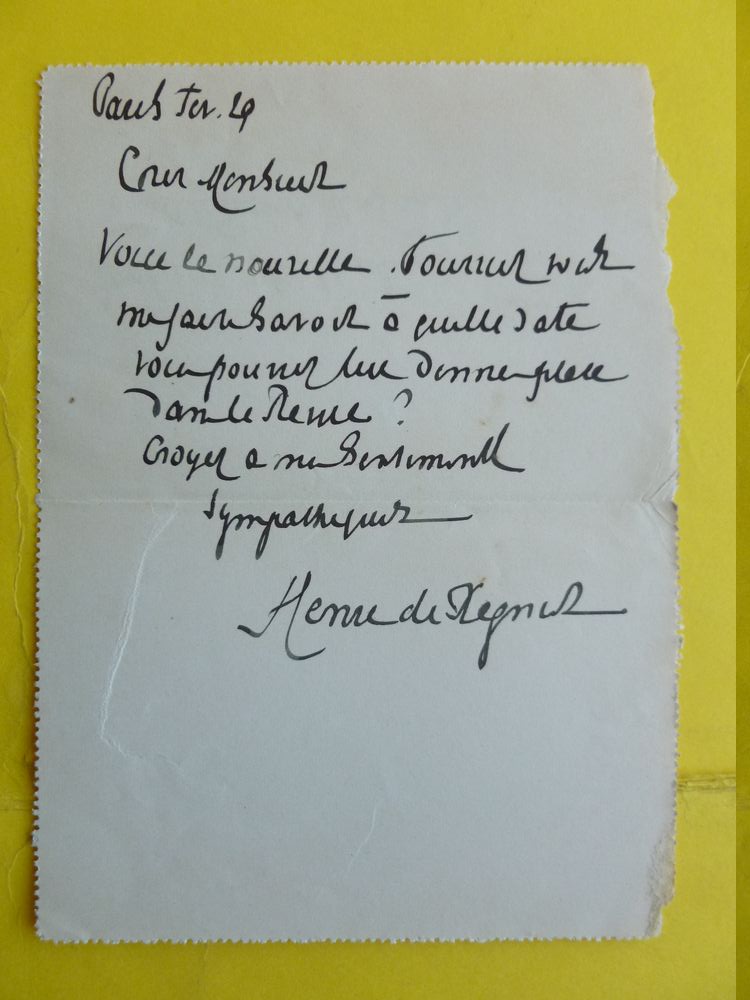 Paris Fev. 29
Cher Monsieur
Voici la nouvelle. Pourriez vous
me faire savoir à quelle date
vous pourrez lui donner place
dans la Revue ?
Croyez à mes sentiments
sympathiques
Henri de Régnier